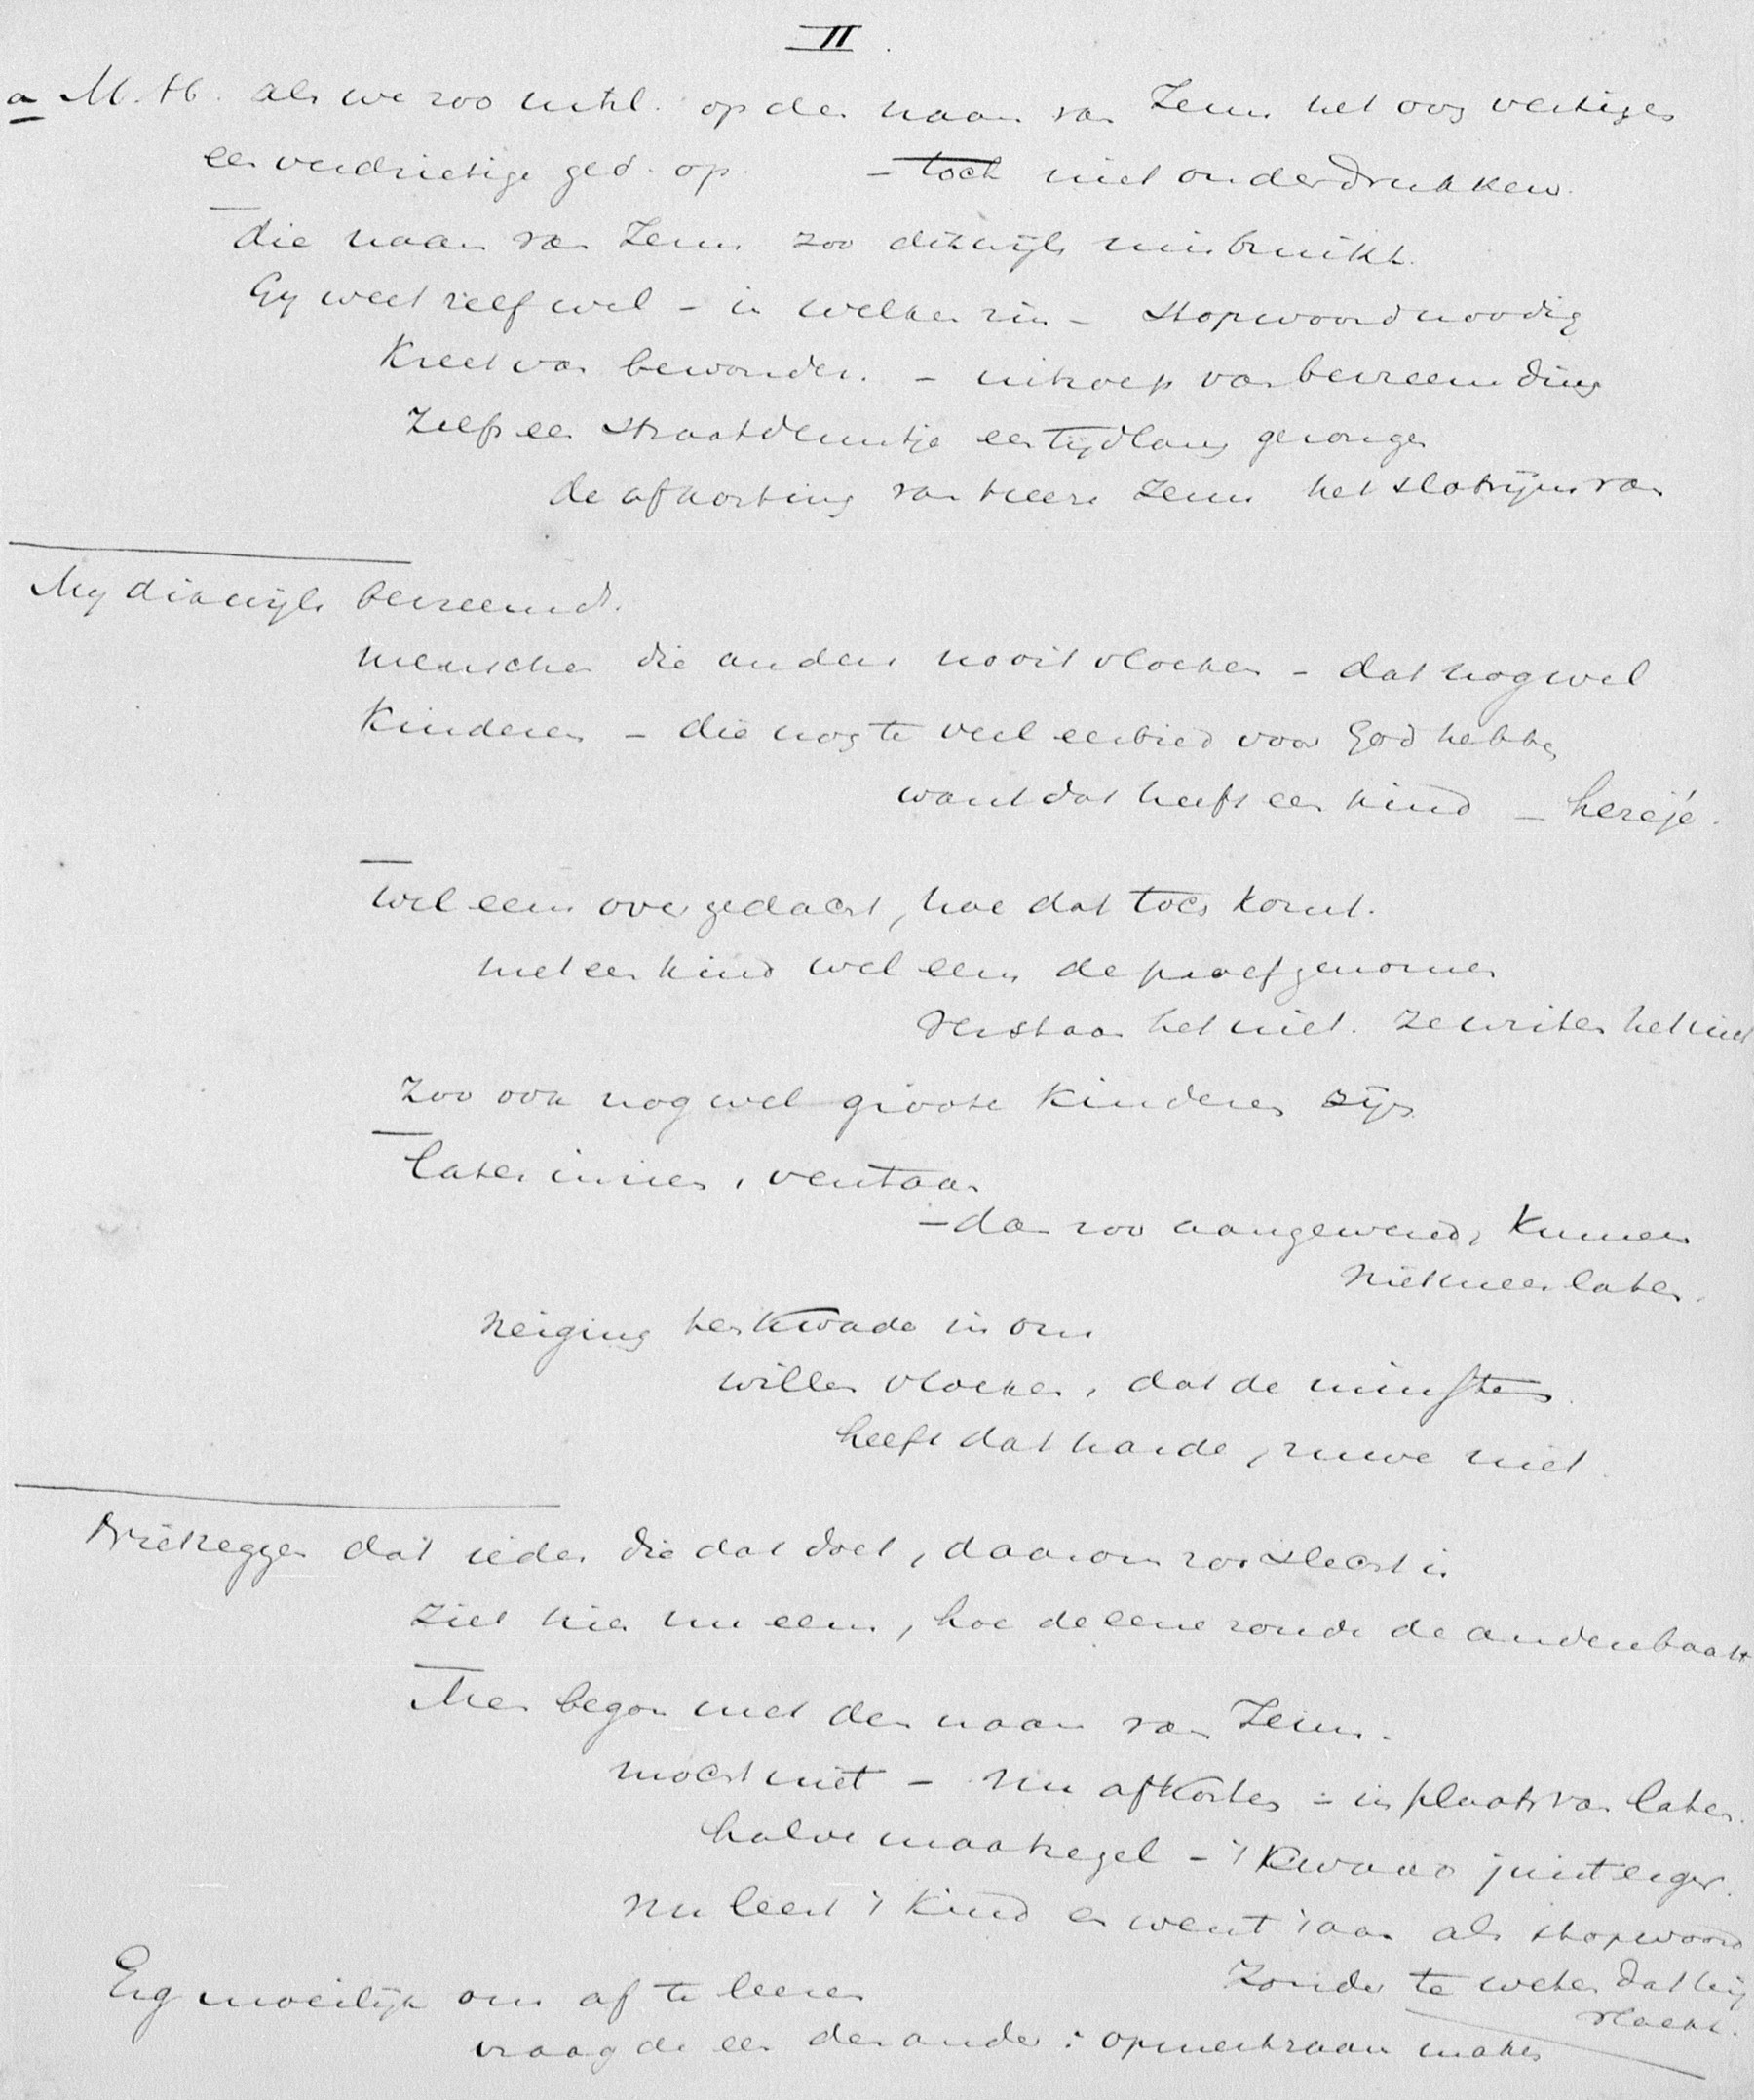 II.
a M. H. als we zoo uitsl. op den naam van Jezus het oog vestigen
een verdrietige ged. op. - toch niet onderdrukken.
die naam van Jezus zoo dikwijls misbruikt.
Gy weet zelf wel - in welken zin - stopwoord noodig
Kreet van bewonder. - uitroep van bevreemding
Zelfs een straatdeuntje een tijdlang gezongen
de afkorting van Heere Jezus het slotrijm van
My dikwijls bevreemd.
menschen die anders nooit vloeken - dat nog wel
Kinderen - die nog te veel eerbied voor God hebben
want dat heeft een kind - herejé.
Wel eens over gedacht, hoe dat toch komt.
met een kind wel eens de proef genomen
Verstaan het niet. ze wisten het niet
Zoo ook nog wel groote Kinderen zijn
Laten immers, verstaan
- dan zoo aangewend, Kunnen
niet meer laten.
Neiging ten Kwade in ons
willen vloeken, dat de minsten
heeft dat harde, ruwe niet.
Niet zeggen dat ieder die dat doet, daarom zoo slecht is
Ziet hier nu eens, hoe de eene zonde de andere baart
Men begon met den naam van Jezus.
mocht niet - Nu afkorten - in plaats van laten.
halve maatregel - 't Kwaad juist erger.
Nu leert 't Kind en went 't aan als stopwoord
Zonder te weten dat hij
vloekt.
Erg moeilijk om af te leeren
vraag de een den ander: opmerkzaam maken